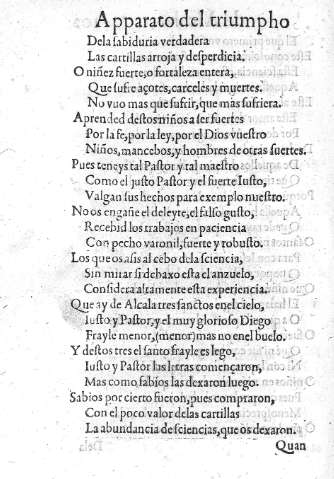 Apparato del triumpho
Dela sabiduria verdadera
Las cartillas arroja y desperdicia.
O niñez fuerte, o fortaleza entera,
Que sufre açotes, carceles y muertes.
No vuo mas que sufrir, que mas sufriera.
Aprended destos niños a ser fuertes
Por la fe, por la ley, por el Dios vuestro
Niños, mancebos, y hombres de otras suertes.
Pues teneys tal Pastor y tal maestro
Como el justo Pastor y el fuerte Iusto,
Valgan sus hechos para exemplo nuestro.
No os engañe el deleyte, el falso gusto,
Recebid los trabajos en paciencia
Con pecho varonil, fuerte y robusto.
Los que os asis al cebo de la sciencia,
Sin mirar si debaxo esta el anzuelo,
Considera altamente esta experiencia.
Que ay de Alcala tres sanctos en el cielo,
Iusto y Pastor, y el muy glorioso Diego
Frayle menor, (menor) mas no en el buelo.
Y destos tres el santo frayle es lego,
Iusto y Pastor las letras començaron,
Mas como sabios las dexaron luego.
Sabios por cierto fueron, pues compraron,
Con el poco valor delas cartillas
La abundancia de sciencias, que os dexaron.
Quan